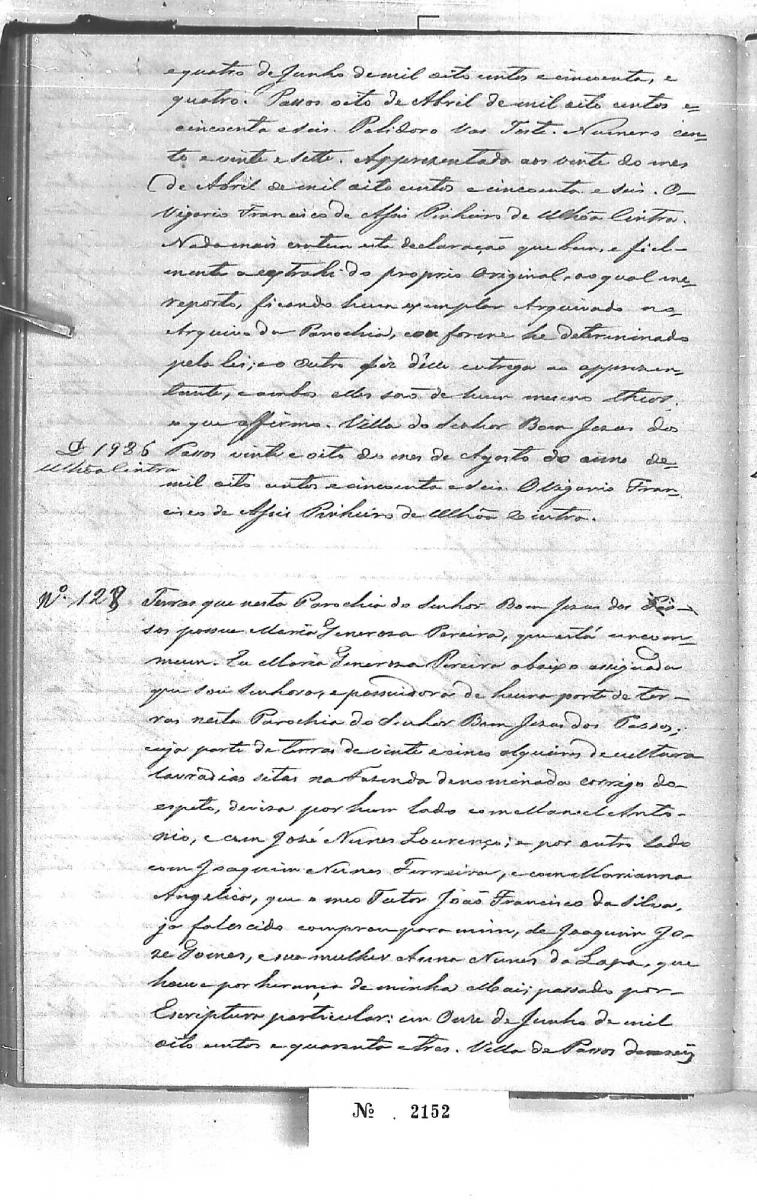 e quatro de Junho de mil oito centos e cincoenta, e
quatro. Passos oito de Abril de mil oito centos e
cincoenta e seis. Polidoro Vas Teste. Numero cen-
to e vinte e sette. Appresentado aos vinte do mes
de Abril de mil oito centos e cincoenta e seis. O
Vigario Francisco de Assis Pinheiro de Ulhôa Cintra.
Nada mais contem esta declaração que bem, e fiel-
mente a extrahi do proprio Original, ao qual me
reporto, ficando hum exemplar Arquivado no
Arquivo da Parochia, conforme he determinado
pela lei; e o outro fiz d'elle entrega ao apprezen-
tante, e ambos elles são de hum mesmo theor;
o que affirmo. Villa do Senhor Bom Jesus dos
Passos vinte e oito do mes de Agosto do anno de
mil oito centos e cincoenta e seis. O Vigario Fran-
cisco de Assis Pinheiro de Ulhôa Cintra.
1986
Ulhôa Cintra
Nº. 128 Terras que nesta Parochia do Senhor Bom Jesus dos Pas-
sos possue Maria Generoza Pereira, que está em com-
mum. Eu Maria Generoza Pereira abaixo assignada
que sou Senhora, e possuidora de huma parte de ter-
ras nesta Parochia do Senhor Bom Jesus dos Passos;
cuja parte de terras de vinte e sinco alqueires de cultura
lavradias setas na Fazenda denominada corrigo do
espeto, deviza por hum lado com Manoel Anto-
nio, e com José Nunes Lourenço; e por outro lado
com Joaquim Nunes Ferreira, e com Marianna
Angelica, que o meo Tutor João Francisco da Silva,
já falescido comprou para mim, de Joaquim Jo-
ze Gomes, e sua mulher Anna Nunes da Lapa, que
houve por herança de minha Mai; passado por
Escriptura particular: em Onze de Junho de mil
oito centos e quarenta e tres. Villa de Passos
Nº . 2152